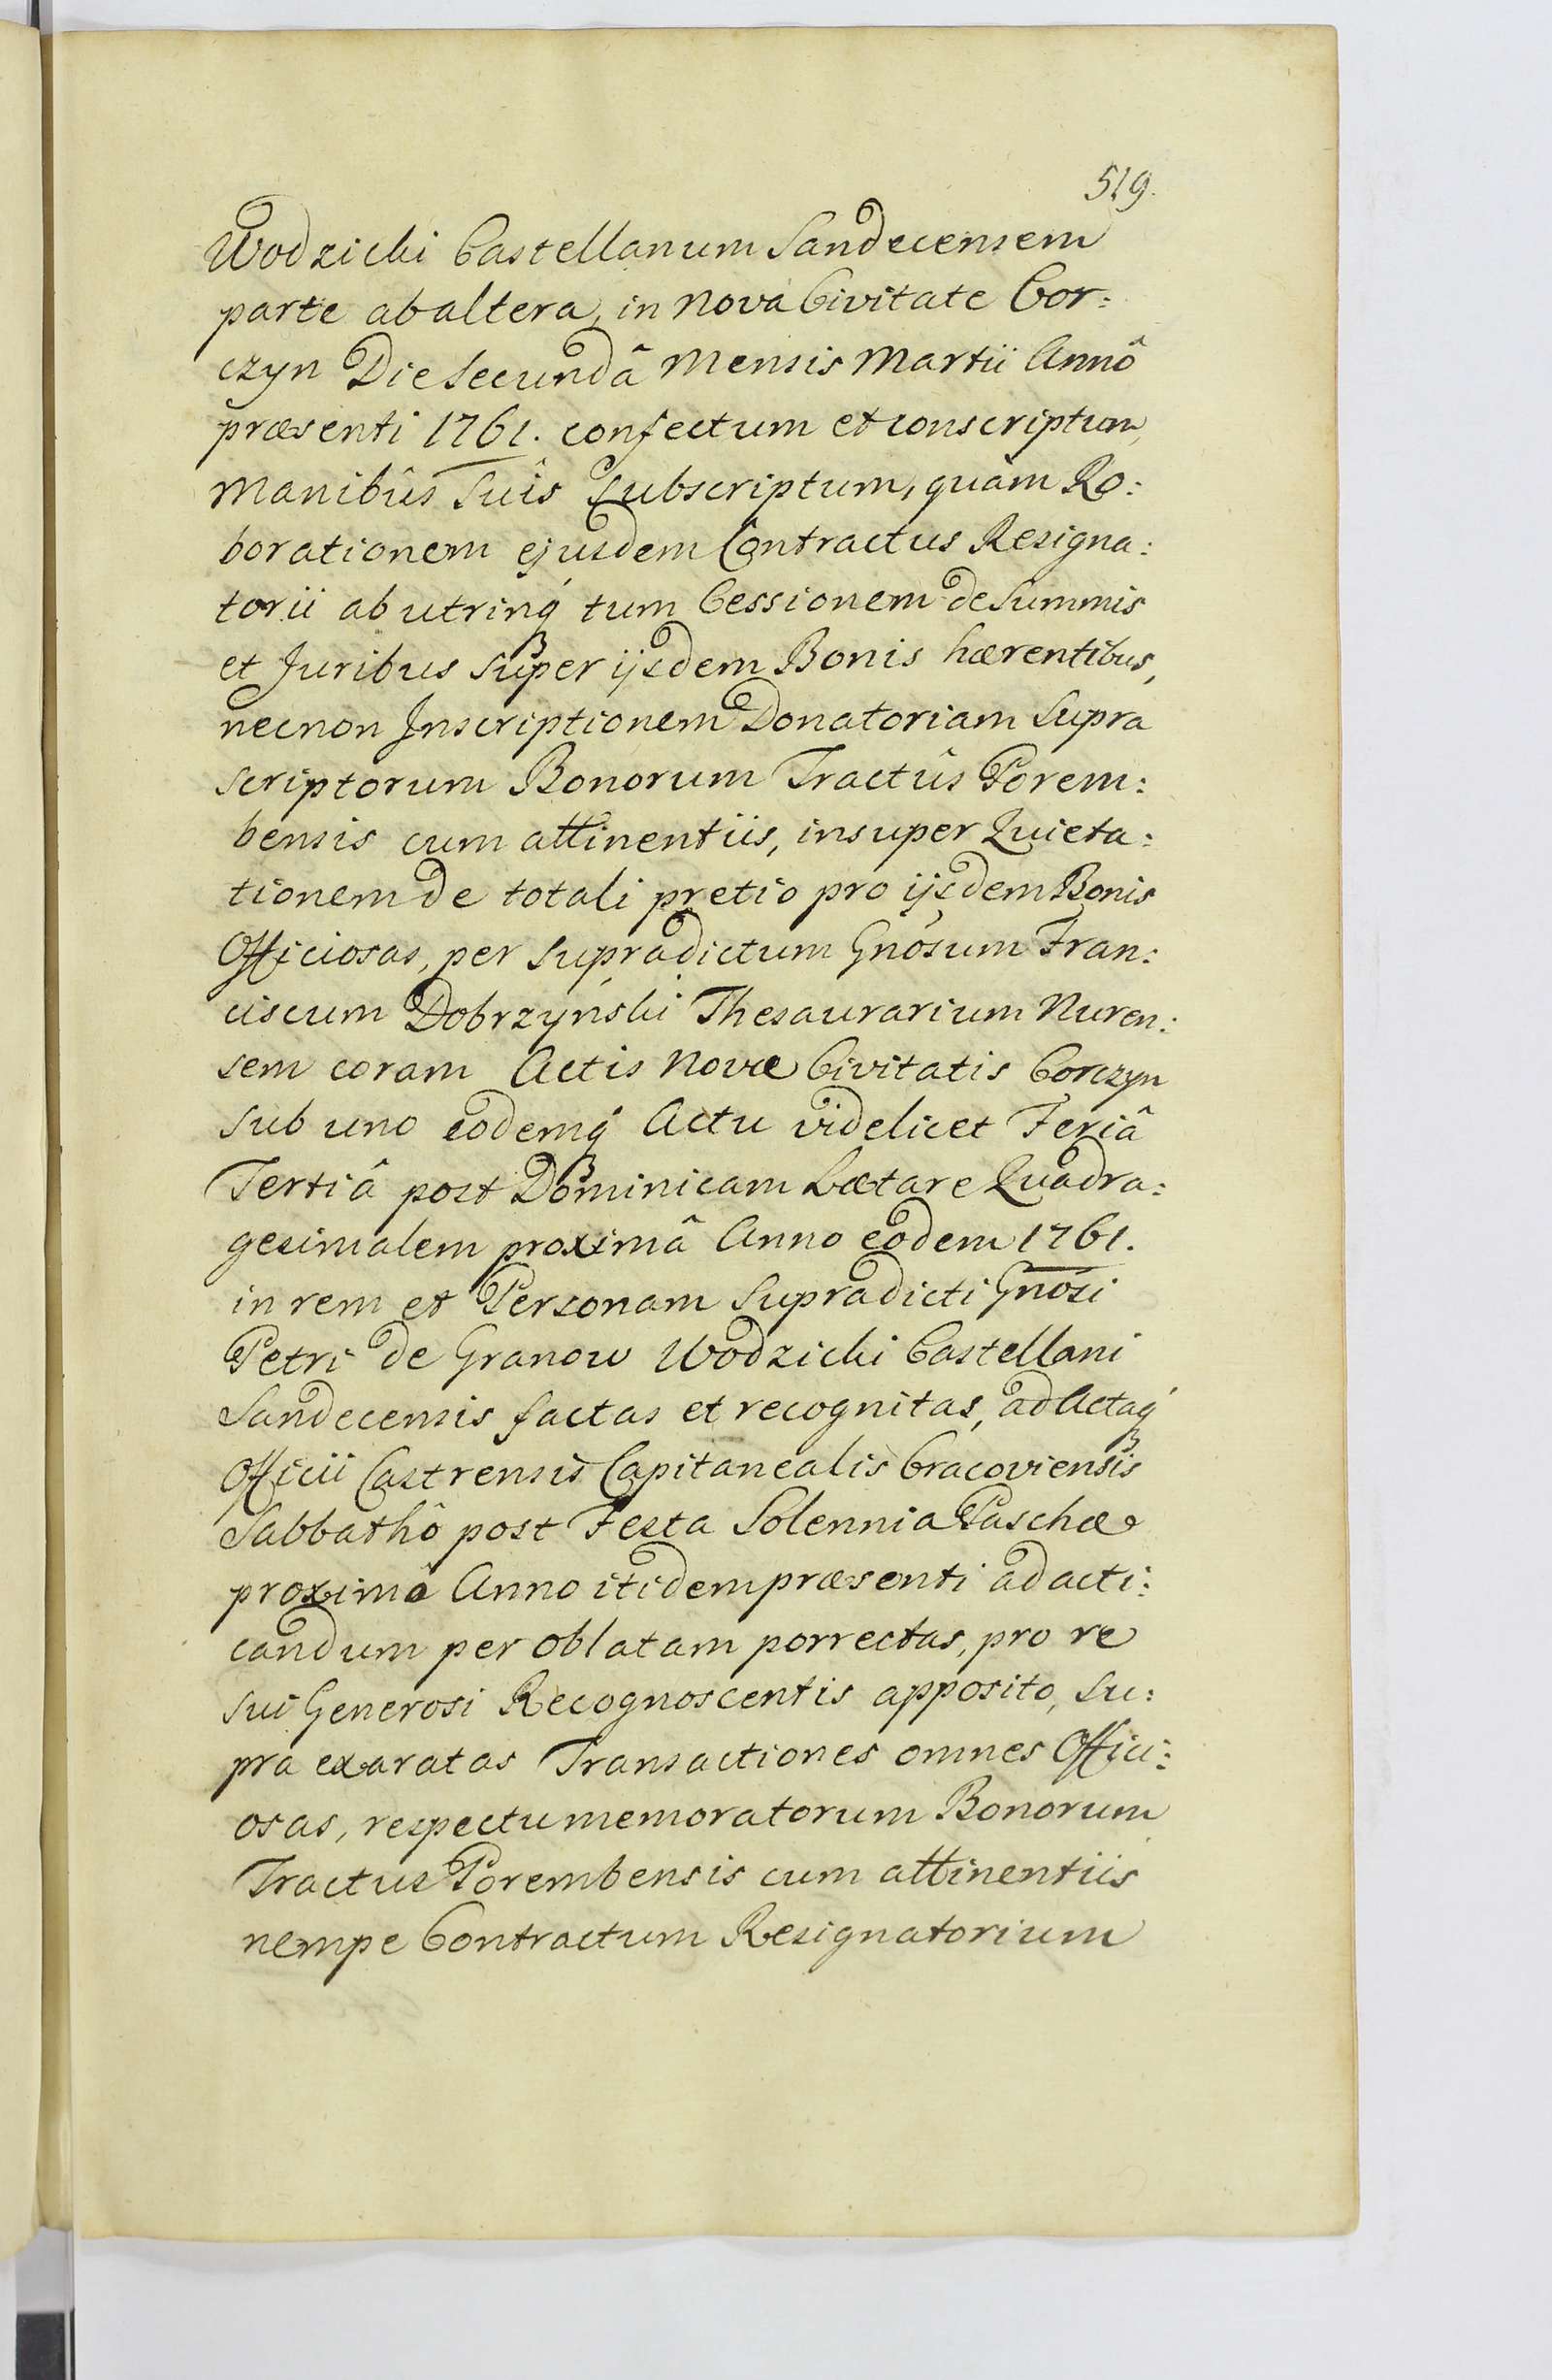 519.
Wodzicki Castellanum Sandecensem
parte ab altera, in Nova Civitate Cor:
czyn Die Secundâ Mensis Martii Annô
præsenti 1761. confectum et conscriptum,
Manibûs Suîs Subscriptum, quàm Ro:
borationem ejusdem Contractûs Resigna:
torii ab utrinq́ tum Cessionem de Summis
et Juribus super ijsdem Bonis hærentibus,
necnon Inscriptionem Donatoriam Supra
scriptorum Bonorum Tractûs Porem:
bensis cum attinentiis, insuper Quieta:
tionem de totali pretio pro ijsdem Bonis
Officiosas, per supradictum Gnosum Fran:
ciscum Dobrzyński Thesaurarium Nuren:
sem coram Actis Novæ Civitatis Corczyn
sub uno eodemq́ Actu videlicet Feriâ
Tertiâ post Dominicam Lætare Quadra:
gesimalem proximâ Anno eodem 1761.
in rem et Personam Supradicti Gnosi
Petri de Granow Wodzicki Castellani
Sandecensis factas et recognitas, ad Actaq́
Officii Castrensis Capitanealis Cracoviensis
Sabbathô post Festa Solennia Paschæ
proximo Anno itidem præsenti ad acti:
candum per oblatam porrectas, pro re
sui Generosi Recognoscentis apposito, su:
pra exaratas Transactiones omnes Offici:
osas, respectu memoratorum Bonorum
Tractus Porembensis cum attinentiis
nempe Contractum Resignatorium